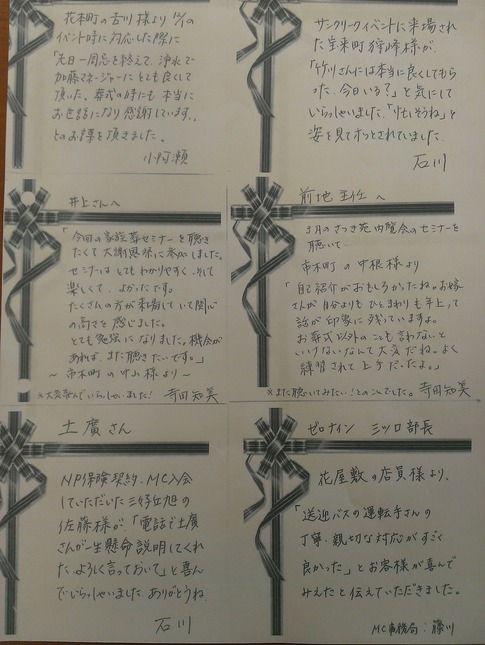 花本町の古川様より
イベント時に対応した際に
「先日一周忌を終えて、浄水で
加藤マネージャーにとても良くして
頂いた。葬式の時にも本当に
お世話になり感謝しています。」
とのお褒を頂きました。
小阿瀬
サンクリークイベントに来場され
た宝来町狩峰様が、
「竹川さんには本当に良くしてもら
った。今日いる?」と気にして
いらっしゃいました。「忙しそうね」と
姿を見てホッとされていました。
石川
井上さんへ
「今回の家族葬セミナーを聴き
たくて大謝恩祭に参加しました。
セミナーはとてもわかりやすく、そして
楽しくて、よかったです。
たくさんの方が来場していて関心
の高さを感じました。
とても勉強になりました。機会が
あれば、また聴きたいです。」
~市木町の中山様より~
※大変喜んでいらっしゃいました! 寺田知美
前地主任へ
3月のさつき苑内覧会のセミナーを
聴いて
市木町の中根様より
「自己紹介がおもしろかったね。お嫁
さんが自分よりもひとまわりも年上って
話が印象に残っていますよ。
お葬式以外のことも言わないと
いけないなんて大変だね。よく
練習されて上手だったよ。」
※また聴いてみたい!とのことでした。寺田知美
土廣さん
NPI保険契約、MC入会
していただいた三好丘旭の
佐藤様が、「電話で土廣
さんが一生懸命説明してくれ
た。よろしく言っておいて」と喜ん
でいらっしゃいました。ありがとうね
石川
ゼロナイン 三ツ口部長
花屋敷の店員様より、
「送迎バスの運転手さんの
丁寧・親切な対応がすごく
良かった」とお客様が喜んで
みえたと伝えていただきました。
MC事務局:藤川